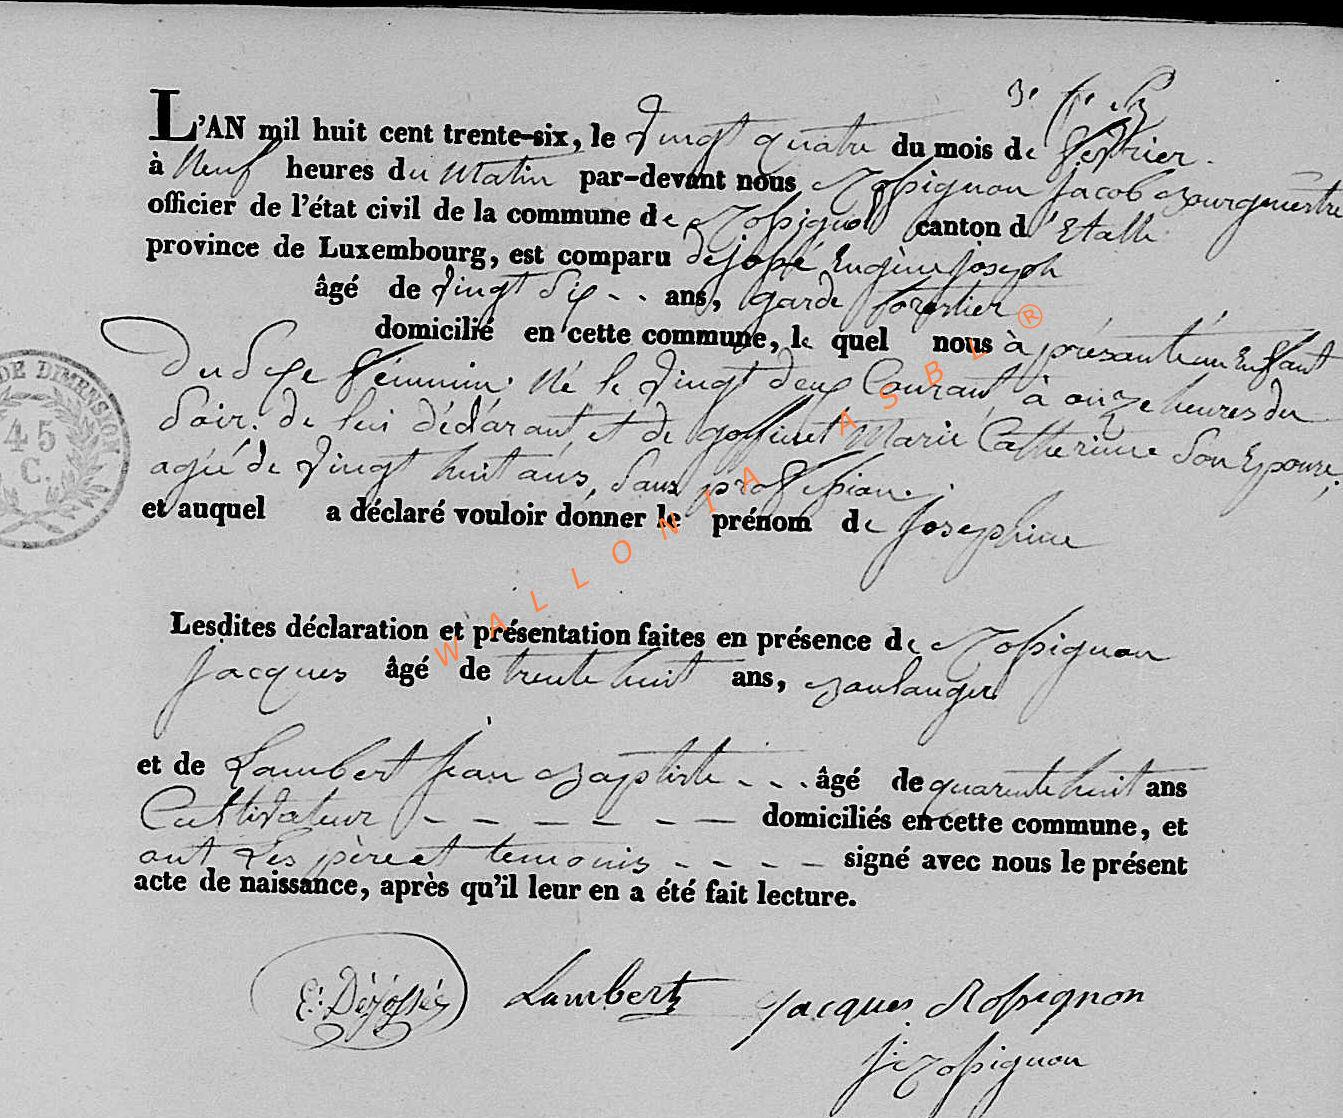 L'AN mil huit cent trente-six, le Vingt quatre du mois de février.
à Neuf heures du Matin par-devant nous Rossignon Jacob Bourgmestre
officier de l'état civil de la commune de Rossignol canton d'Etalle
province de Luxembourg, est comparu Eugène Joseph
âgé de Vingt Six - - ans, garde forestier
domicilié en cette commune, le quel nous à présenté un Enfant
DE DIMENSION
45
C.
Du Sexe féminin. Né le Vingt deux Courant à onze heures du
Soir. de lui déclarant, et de goffinet Marie Catherine Son Epouse,
agée de Vingt huit ans, Sans profession.
et auquel a déclaré vouloir donner le prénom de Josephine
Lesdites déclaration et présentation faites en présence de Rossignon
Jacques âgé de trente huit ans, Boulanger
et de Lambert Jean Baptiste - - - âgé de quarente huit ans
Cultivateur - - - - - - - domiciliés en cette commune, et
ont Les père et temoins - - - - signé avec nous le présent
acte de naissance, après qu'il leur en a été fait lecture.
Lambert Jacques Rossignon
J Rossignon
WALLONIA ASBL ®